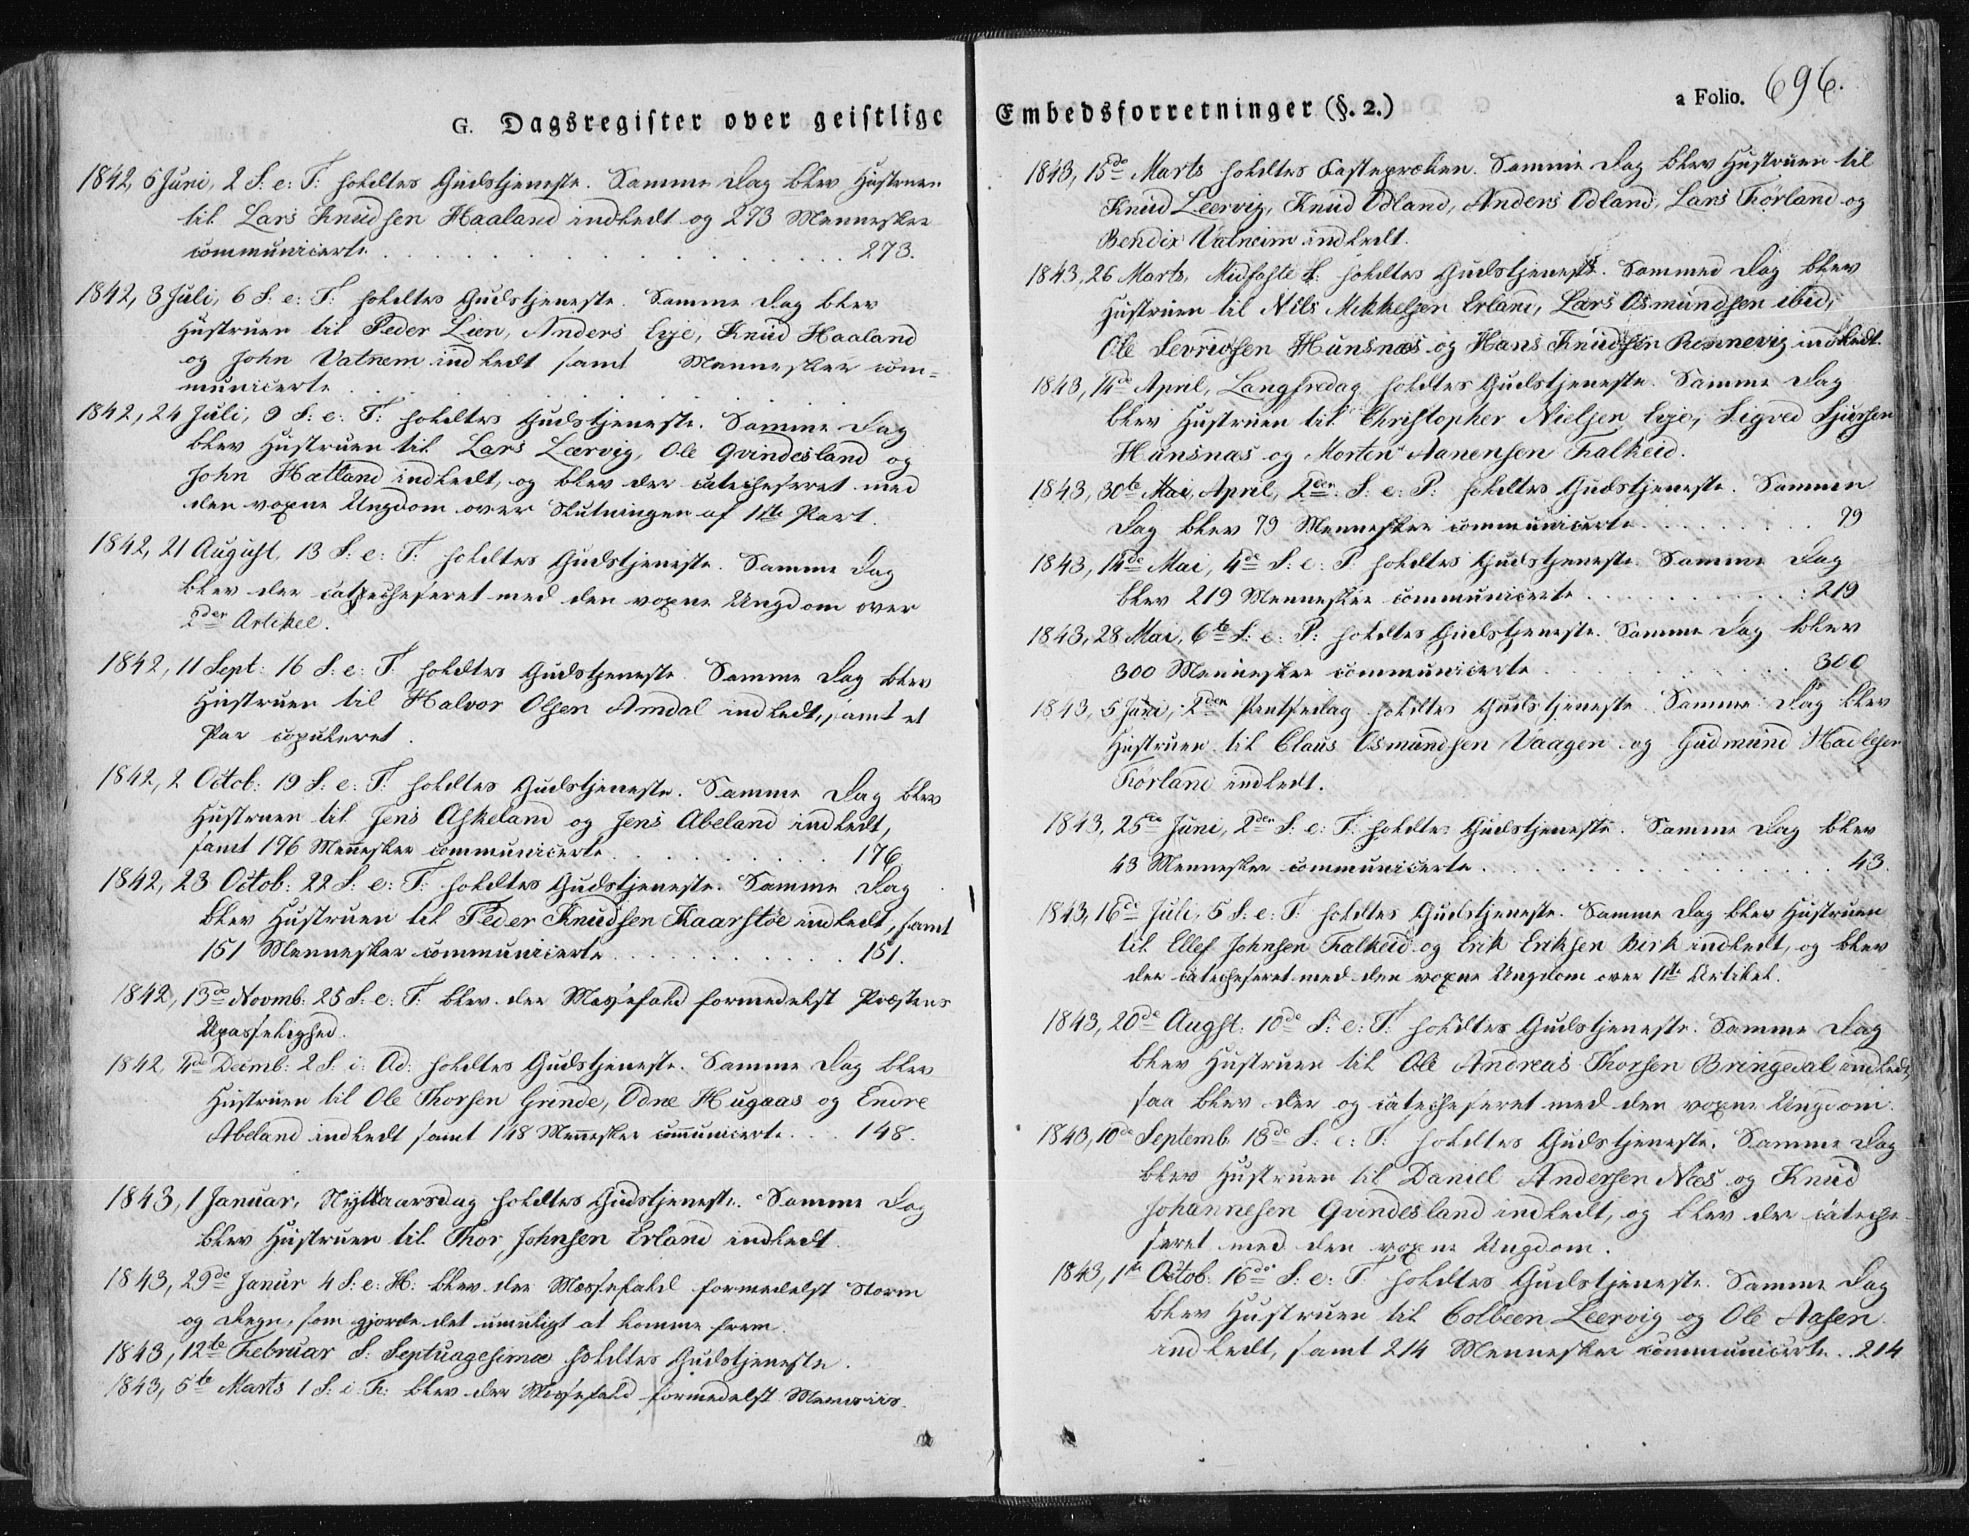 G. Dagsregister over geistlige
1842, 5 Juni, 2 S: e: T: holdtes Gudstjeneste. Samme Dag blev Hustruen
til Lars Knudsen Haaland indledt og 273 Mennesker
communicerte . . . . . . . . . . 273.
1842, 3 Juli, 6 S: e: T: holdtes Gudstjeneste. Samme Dag blev
Hustruen til Peder Lien, Anders Eye, Knud Haaland
og John Vatnem indledt samt Mennesker com-
municerte . . . . . . . . . .
1842, 24 Juli, 9 S: e: T: holdtes Gudstjeneste. Samme Dag
blev Hustruen til Lars Lærvig, Ole Qvindesland og
John Hætland indledt, og blev der catecheseret med
den voxne Ungdom over Slutningen af 1ste Part.
1842, 21 August, 13 S: e: T: holdtes Gudstjeneste. Samme Dag
blev der catecheseret med den voxne Ungdom over
2den Artikel.
1842, 11 Sept: 16 S: e: T: holdtes Gudstjeneste. Samme Dag blev
Hustruen til Halvor Olsen Amdal indledt, samt et
Par copuleret.
1842, 2 Octob: 19 S: e: T: holdtes Gudstjeneste. Samme Dag blev
Hustruen til Jens Askeland og Jens Abeland indledt,
samt 176 Mennesker communicerte . . . . . . . 176
1842, 23 Octob: 22 S: e: T: holdtes Gudstjeneste. Samme Dag
blev Hustruen til Peder Knudsen Kaarstøe indledt, samt
151 Mennesker communicerte . . . . . . . . . 151.
1842, 13de Novmb: 25 S: e: T: blev der Messefald formedelst Præstens
Upasselighed.
1842, 4de Decmb: 2 S: i: Ad: holdtes Gudstjeneste. Samme Dag blev
Hustruen til Ole Thorsen Grinde, Odne Hugaas og Endre
Abeland indledt samt 148 Mennesker communicerte . . . 148.
1843, 1 Januar, Nyttaarsdag holdtes Gudstjeneste. Samme Dag
blev Hustruen til Thor Johnsen Erland indledt.
1843, 29de Janur 4 S: e: H: blev der Messefald formedelst Storm
og Regn, som gjorde det umuligt at komme frem.
1843, 12te Februar S: Septuagesima holdtes Gudstjeneste.
1843, 5te Marts 1 S: i F: blev der Messefald formedelst
Embedsforretninger (§. 2.)
a Folio. 696.
1843, 15de Marts holdtes Fastepræken. Samme Dag blev Hustruen til
Knud Leervig, Knud Odland, Anders Odland, Lars Førland og
Bendix Vatneim indledt.
1843, 26 Marts, Midfaste S: holdtes Gudstjeneste. Samme Dag blev
Hustruen til Nils Mikkelsen Erland, Lars Osmundsen ibid,
Ole Sevridsen Hunsnæs og Hans Knudsen Rønnevig indledt.
1843, 14de April, Langfredag holdtes Gudstjeneste. Samme Dag
blev Hustruen til Christopher Nielsen Eye, Sigved Sjursen
Hunsnæs og Morten Aanensen Falkeid.
1843, 30te Mai, April, 2den S: e: P: holdtes Gudstjeneste. Samme
Dag blev 79 Mennesker communicerte . . . . . . 79
1843, 14de Mai, 4de S: e: P. holdtes Gudstjeneste. Samme Dag
blev 219 Mennesker communicerte . . . . . . . . 219
1843, 28 Mai, 6te S: e: P: holdtes Gudstjeneste. Samme Dag blev
300 Mennesker communicerte . . . . . . . . 300
1843, 5 Juni, 2den Pintsedag holdtes Gudstjeneste. Samme Dag blev
Hustruen til Claus Osmundsen Vaagen og Gudmund
Førland indledt.
1843, 25te Juni, 2den S: e: T: holdtes Gudstjeneste. Samme Dag blev
43 Mennesker communicerte . . . . . . . . . . 43.
1843, 16de Juli, 5 S: e: T: holdtes Gudstjeneste. Samme Dag blev Hustruen
til Ellef Johnsen Falkeid og Erik Eriksen Birk indledt, og blev
der catecheseret med den voxne Ungdom over 1ste Artikel.
1843, 20de Augst: 10de S: e: T: holdtes Gudstjeneste. Samme Dag
blev Hustruen til Ole Andreas Thorsen Bringedal indledt,
saa blev der og catecheseret med den voxne Ungdom.
1843, 10de Septemb. 13de S: e: T: holdtes Gudstjeneste. Samme Dag
blev Hustruen til Daniel Andersen Næs og Knud
Johannesen Qvindesland indledt, og blev der cateche-
seret med den voxne Ungdom.
1843, 1ste Octob: 16de S: e: T: holdtes Gudstjeneste. Samme Dag
blev Hustruen til Colbeen Leervig og Ole Aasen
indledt, samt 214 Mennesker communicerte . . 214